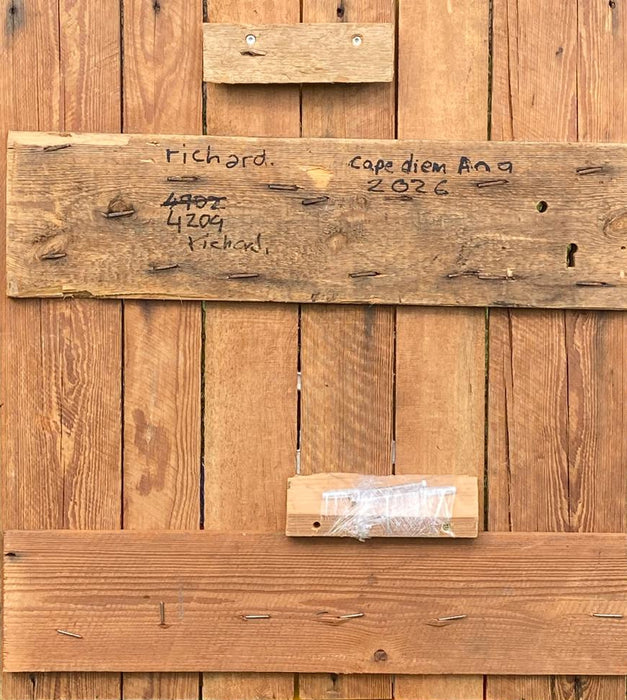 richard.
cape diem Ana
2026
4902
4209
richard.